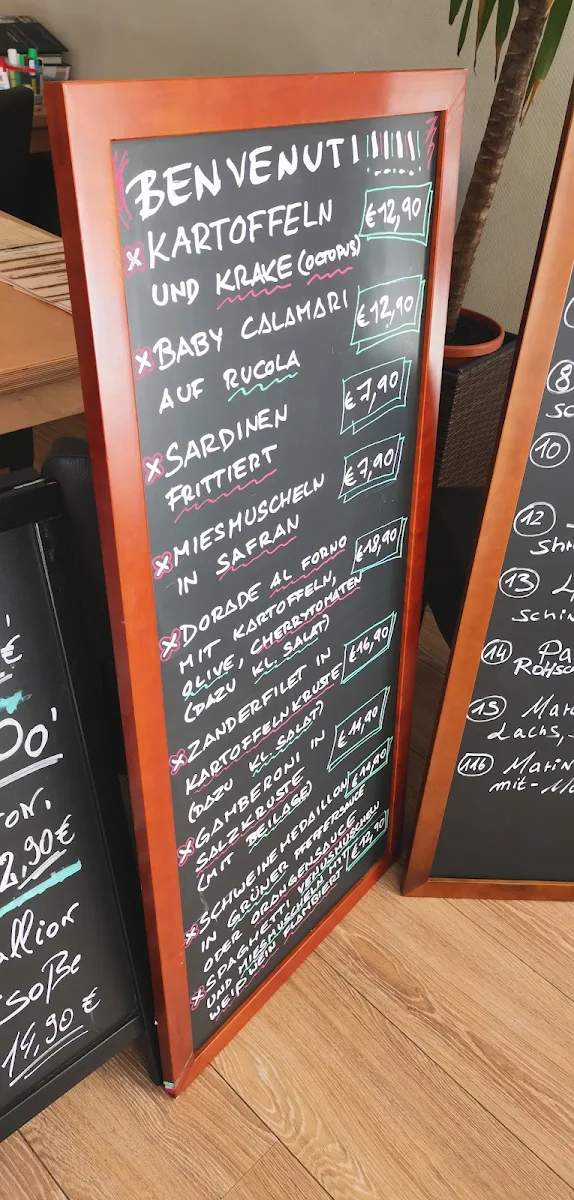 BENVENUTI!!!!!
x KARTOFFELN €12,90
UND KRAKE (OCTOPUS)
x BABY CALAMARI €12,90
AUF RUCOLA
x SARDINEN €7,90
FRITTIERT
x MIESMUSCHELN €7,90
IN SAFRAN
x DORADE AL FORNO €18,90
MIT KARTOFFELN,
OLIVE, CHERRYTOMATEN
(DAZU KL. SALAT)
x ZANDERFILET IN €16,90
KARTOFFELNKRUSTE
(DAZU KL. SALAT)
x GAMBERONI IN
SALZKRUSTE
(MIT BEILAGE)
x SCHWEINEMEDAILLON
IN GRÜNER PFEFFERSAUCE
ODER ORANGENSAUCE
x SPAGHETTI VENUSMUSCHELN €12,90
UND MIESMUSCHELN MIT
WEIßWEIN FLAMBIERT
€
2,90€
soße
14,90 €
8
10
12
13
14
15
Lachs,
116
mit-